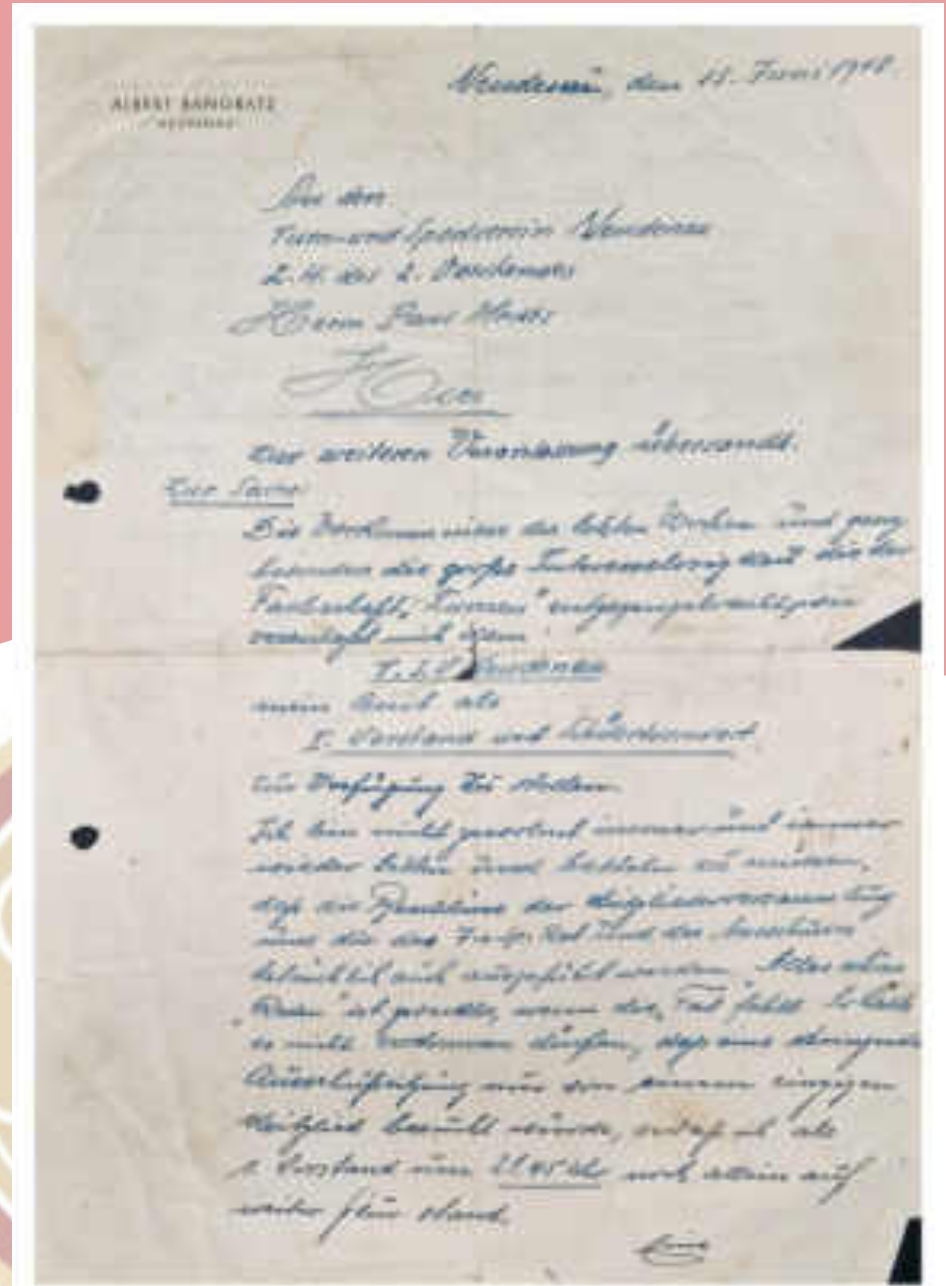 ALBERT BANGRATZ
Neudenau, den 15. Juni 1948.
An den
Turn- und Sportverein Neudenau
z. H. des 2. Vorstandes
Herrn Paul
Hier
zur weiteren Veranlassung übersandt.
Zur Sache
Die Vorkommnisse der letzten Wochen und ganz
besonders die große Interesselosigkeit die der
Fachschaft "Turnen" entgegengebracht
veranlaßt mich dem
T.S.V. Neudenau
mein Amt als
1. Vorstand und
zur Verfügung zu stellen.
Ich bin nicht immer und immer
wieder bitten und betteln zu müssen,
daß die Beschlüsse der Mitgliederversammlung
und die des und der
auch ausgeführt werden. Alles
ist zwecklos, wenn die "Tat" fehlt. Es hätte
nicht vorkommen dürfen, daß eine dringende
nur von einem einzigen
Mitglied besucht wurde, sodaß ich als
1. Vorstand um 21.45 Uhr noch allein auf
weiter Flur stand.